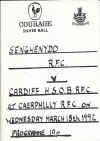 COURAGE
SILVER BALL
SENGHENYDD
R.F.C
V
CARDIFF H.S.O.B. R.F.C.
AT CAERPHILLY R.F.C ON
WEDNESDAY MARCH 18th 1992
PROGRAMME 10p